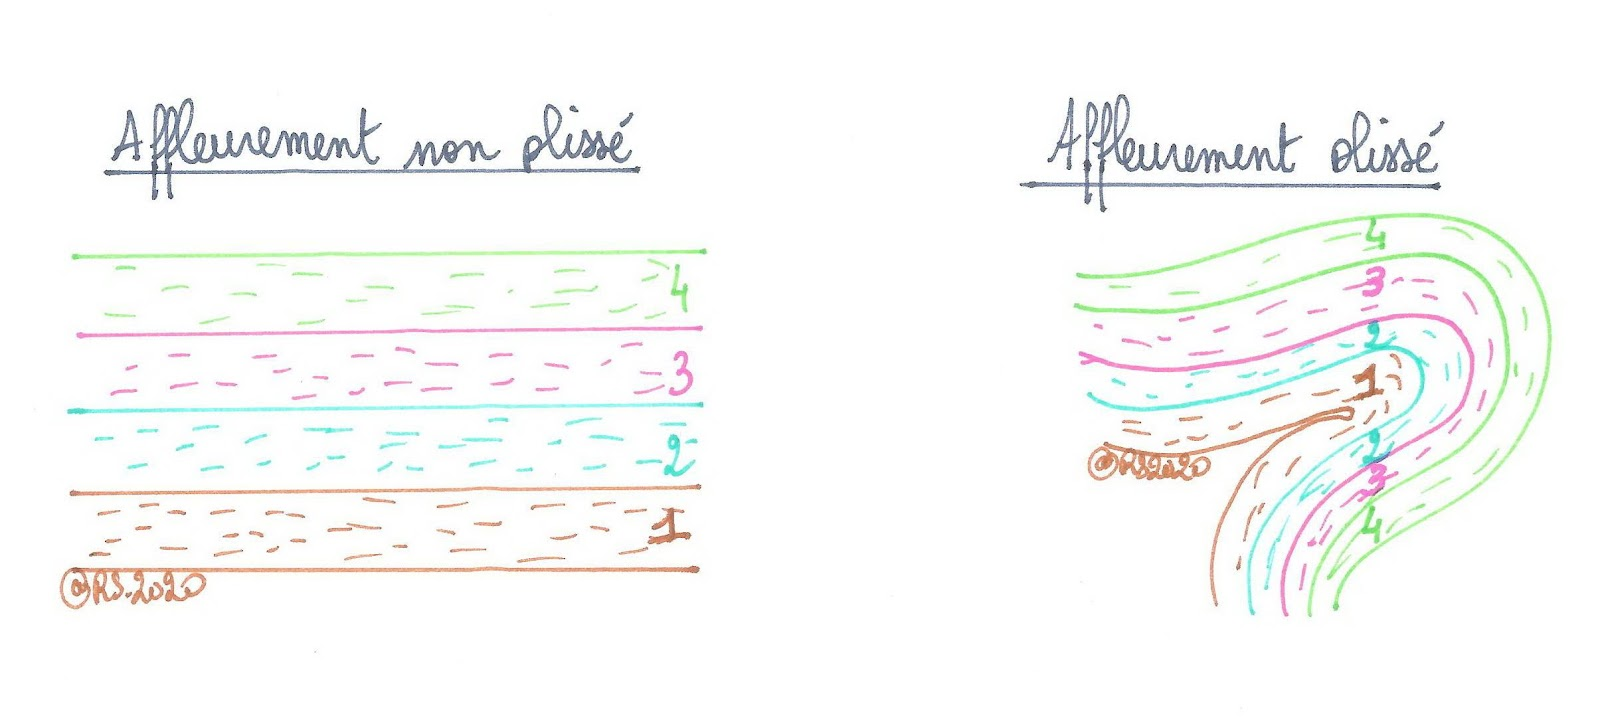 Affleurement non plissé
4
3
2
1
@RS.2020
Affleurement plissé
4
3
2
1
@RS2020
2
3
4